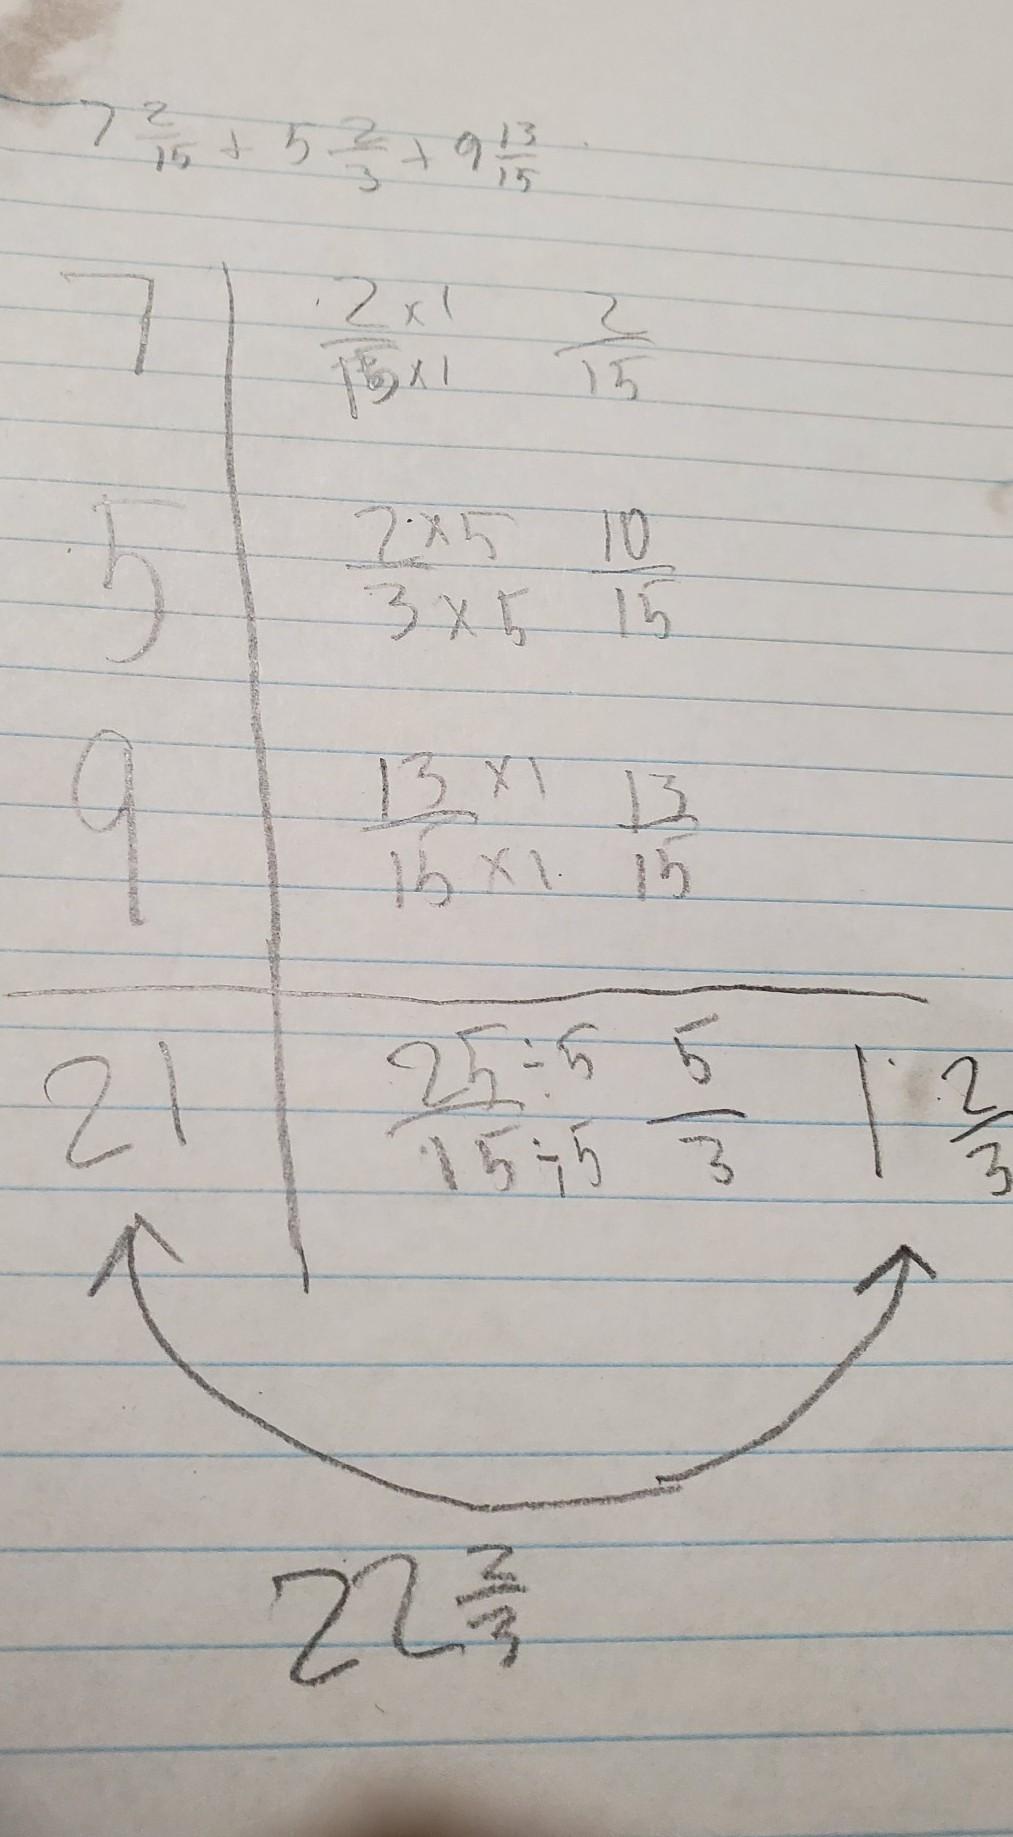 7 2/15 + 5 2/3 + 9 13/15
7 | 2/15 ×1/×1 2/15
5 | 2/3 ×5/×5 10/15
9 | 13/15 ×1/×1 13/15
21 | 25/15 ÷5/÷5 5/3 1 2/3
22 2/3